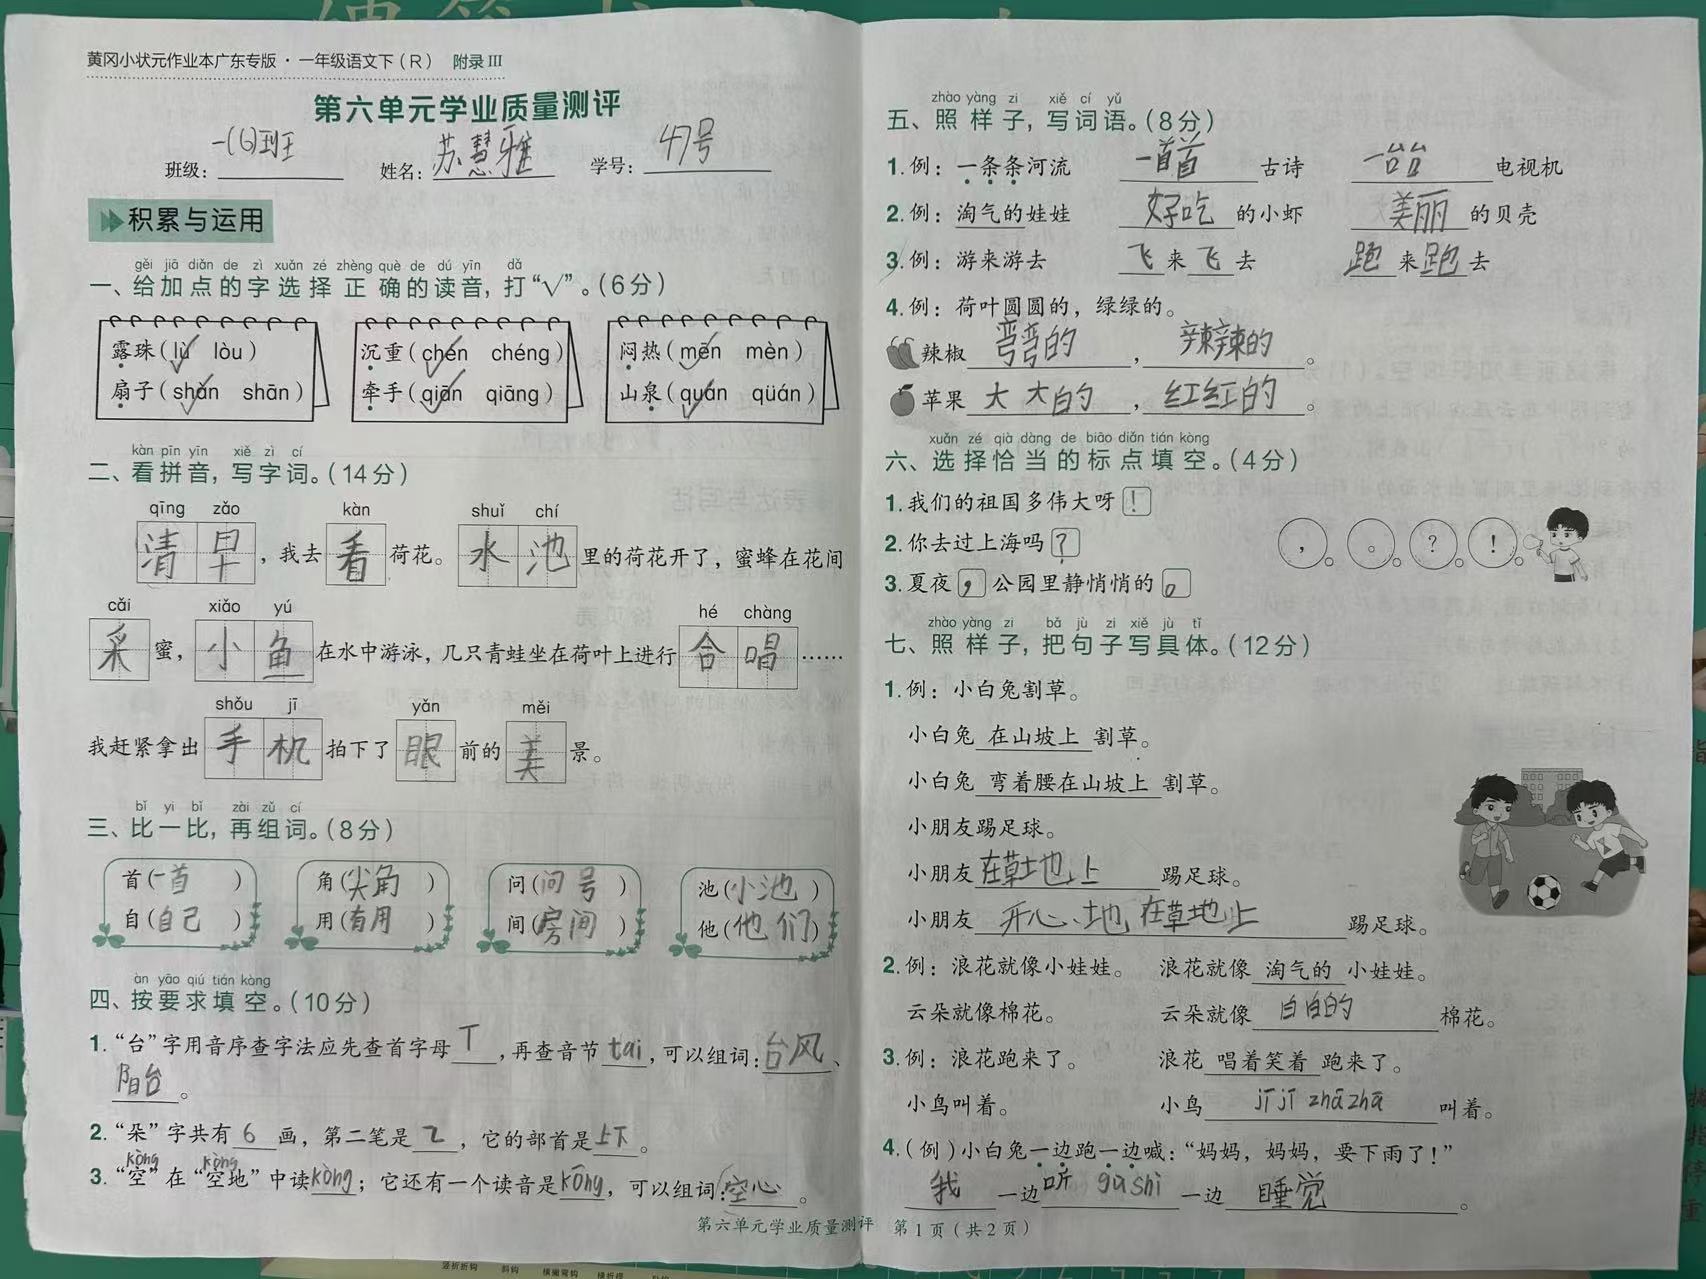 黄冈小状元作业本广东专版·一年级语文下（R） 附录III
第六单元学业质量测评
班级：一(6)班 姓名：苏慧雅 学号：47号
积累与运用
gěi jiā diǎn de zì xuǎn zé zhèng què de dú yīn dǎ
一、给加点的字选择正确的读音，打“√”。（6分）
露珠（lù√ lòu） 沉重（chén√ chéng） 闷热（mēn√ mèn）
扇子（shàn√ shān） 牵手（qiān√ qiāng） 山泉（quán√ qüán）
kàn pīn yīn xiě zì cí
二、看拼音，写字词。（14分）
qīng zǎo kàn shuǐ chí
清早，我去看荷花。水池里的荷花开了，蜜蜂在花间
cǎi xiǎo yú hé chàng
采蜜，小鱼在水中游泳，几只青蛙坐在荷叶上进行合唱……
shǒu jī yǎn měi
我赶紧拿出手机拍下了眼前的美景。
bǐ yi bǐ zài zǔ cí
三、比一比，再组词。（8分）
首（一首） 角（尖角） 问（问号） 池（小池）
自（自己） 用（有用） 间（房间） 他（他们）
àn yāo qiú tián kòng
四、按要求填空。（10分）
1.“台”字用音序查字法应先查首字母T，再查音节tai，可以组词：台风、
阳台。
2.“朵”字共有6画，第二笔是乙，它的部首是上下。
kòng kòng
3.“空”在“空地”中读kòng；它还有一个读音是kōng，可以组词：空心。
zhào yàng zi xiě cí yǔ
五、照样子，写词语。（8分）
1.例：一条条河流 一首首古诗 一台台电视机
2.例：淘气的娃娃 好吃的小虾 美丽的贝壳
3.例：游来游去 飞来飞去 跑来跑去
4.例：荷叶圆圆的，绿绿的。
辣椒弯弯的，辣辣的。
苹果大大的，红红的。
xuǎn zé qià dàng de biāo diǎn tián kòng
六、选择恰当的标点填空。（4分）
1.我们的祖国多伟大呀！
2.你去过上海吗？
， 。 ？ ！
3.夏夜，公园里静悄悄的。
zhào yàng zi bǎ jù zi xiě jù tǐ
七、照样子，把句子写具体。（12分）
1.例：小白兔割草。
小白兔在山坡上割草。
小白兔弯着腰在山坡上割草。
小朋友踢足球。
小朋友在草地上踢足球。
小朋友开心地在草地上踢足球。
2.例：浪花就像小娃娃。 浪花就像淘气的小娃娃。
云朵就像棉花。 云朵就像白白的棉花。
3.例：浪花跑来了。 浪花唱着笑着跑来了。
小鸟叫着。 小鸟jījī zhāzhā叫着。
4.（例）小白兔一边跑一边喊：“妈妈，妈妈，要下雨了！”
我一边听gùshi一边睡觉。
第六单元学业质量测评 第1页（共2页）
竖折折钩 斜钩 横撇弯钩